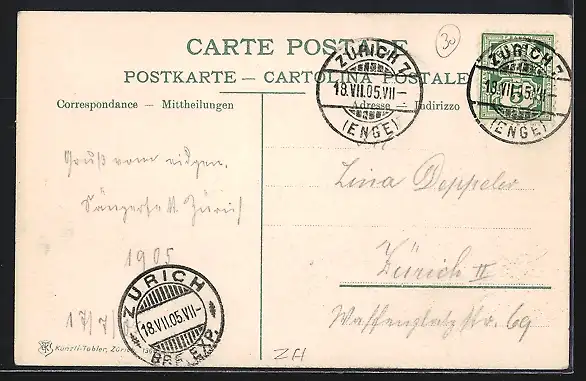 CARTE POSTALE
30
POSTKARTE – CARTOLINA POSTALE
Correspondance – Mittheilungen
Adresse – Indirizzo
ZÜRICH 7
18.VII.05.VII–
(ENGE)
ZÜRICH 7
18.VII.05.VII–
(ENGE)
5
Gruß vom eidgen.
Sängerfest Zürich
1905
17/7
Lina Doppeler
Zürich II
Waffenplatzstr. 69
ZÜRICH
18.VII.05.VII–
BRF. EXP.
Künzli-Tobler, Zürich
ZH